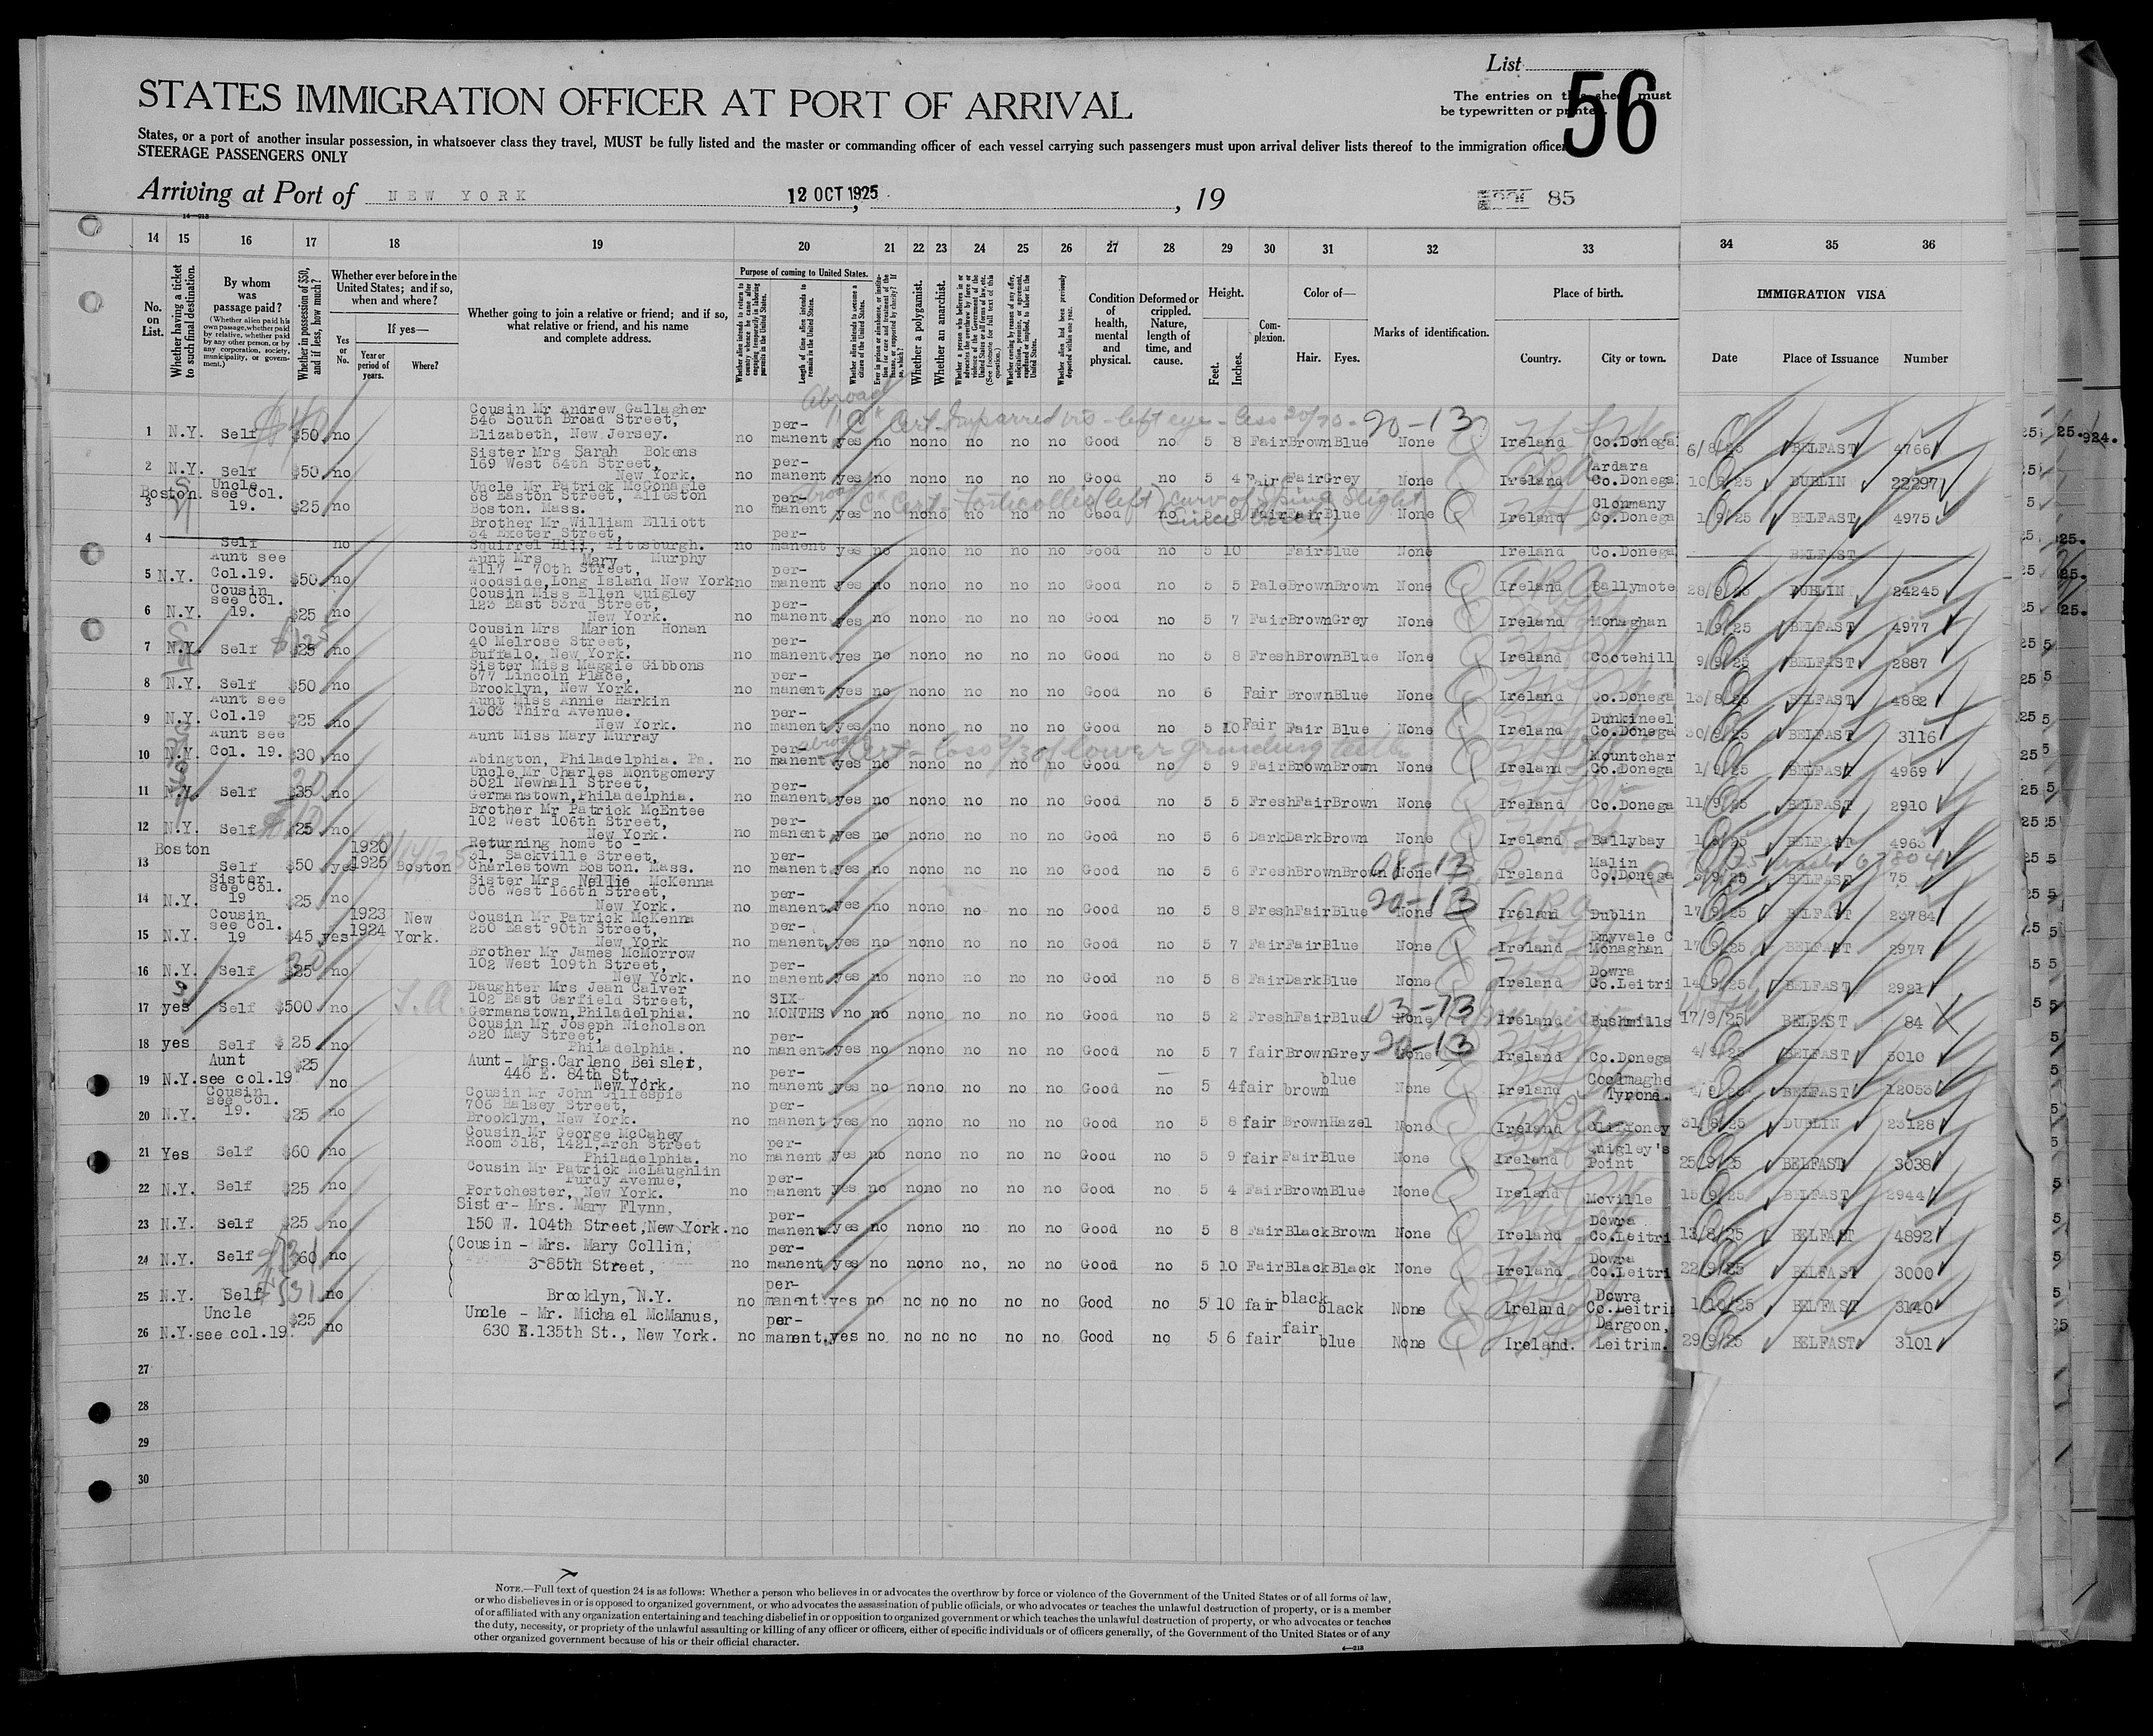 List
56
STATES IMMIGRATION OFFICER AT PORT OF ARRIVAL
The entries on this sheet must
be typewritten or printed.
States, or a port of another insular possession, in whatsoever class they travel, MUST be fully listed and the master or commanding officer of each vessel carrying such passengers must upon arrival deliver lists thereof to the immigration officer
STEERAGE PASSENGERS ONLY
Arriving at Port of NEW YORK 12 OCT 1925, 19 85
14—213
14 15 16 17 18 19 20 21 22 23 24 25 26 27 28 29 30 31 32 33 34 35 36
No. on List.
Whether having a ticket to such final destination.
By whom was passage paid?
(Whether alien paid his own passage, whether paid by relative, whether paid by any other person, or by any corporation, society, municipality, or government.)
Whether in possession of $50, and if less, how much?
Whether ever before in the United States; and if so, when and where?
If yes—
Yes or No.
Year or period of years.
Where?
Whether going to join a relative or friend; and if so, what relative or friend, and his name and complete address.
Purpose of coming to United States.
Length of time alien intends to remain in the United States.
Whether alien intends to become a citizen of the United States.
Whether a polygamist.
Whether an anarchist.
Condition of health, mental and physical.
Deformed or crippled. Nature, length of time, and cause.
Height.
Feet. Inches.
Complexion.
Color of—
Hair. Eyes.
Marks of identification.
Place of birth.
Country. City or town.
IMMIGRATION VISA
Date Place of Issuance Number
abroad
Cert Impaired vis - left eye - less 20/70 - 20-13
Cousin Mr Andrew Gallagher
546 South Broad Street,
1 N.Y. Self $50 no Elizabeth, New Jersey. no per-manent yes no no no no no no Good no 5 8 Fair Brown Blue None Ireland Co.Donega 6/8/25 BELFAST 4766
Sister Mrs Sarah Bokens
169 West 64th Street,
2 N.Y. Self $50 no New York. no per-manent yes no no no no no no Good no 5 4 Fair Fair Grey None Ireland Ardara Co.Donega 10/8/25 DUBLIN 22297
Cert - Torticollis (left) curv of spine slight
(Since birth)
Uncle Mr Patrick McGonagle
68 Easton Street, Alleston
3 Boston. Uncle see Col. 19. $25 no Boston. Mass. no per-manent yes no no no no no no Good no 5 8 Fair Fair Blue None Ireland Clonmany Co.Donega 1/9/25 BELFAST 4975
Brother Mr William Elliott
34 Exeter Street,
4 Self no Squirrel Hill, Pittsburgh. no per-manent yes no no no no no no Good no 5 10 Fair Blue None Ireland Co.Donega BELFAST
Aunt Mrs Mary Murphy
4117 - 70th Street,
5 N.Y. Aunt see Col.19. $50 no Woodside, Long Island New York no per-manent yes no no no no no no Good no 5 5 Pale Brown Brown None Ireland Ballymote 28/9/25 DUBLIN 24245
Cousin Miss Ellen Quigley
123 East 53rd Street,
6 N.Y. Cousin see Col. 19. $25 no New York. no per-manent yes no no no no no no Good no 5 7 Fair Brown Grey None Ireland Monaghan 1/9/25 BELFAST 4977
Cousin Mrs Marion Honan
40 Melrose Street,
7 N.Y. Self $25 no Buffalo, New York. no per-manent yes no no no no no no Good no 5 8 Fresh Brown Blue None Ireland Cootehill 9/9/25 BELFAST 2887
Sister Miss Maggie Gibbons
677 Lincoln Place,
8 N.Y. Self $50 no Brooklyn, New York. no per-manent yes no no no no no no Good no 6 Fair Brown Blue None Ireland Co.Donega 13/8/25 BELFAST 4882
Aunt Miss Annie Harkin
1303 Third Avenue.
9 N.Y. Aunt see Col.19 $25 no New York. no per-manent yes no no no no no no Good no 5 10 Fair Fair Blue None Ireland Dunkineel Co.Donega 30/9/25 BELFAST 3116
abroad Cert - loss 2/3 of lower grinding teeth
Aunt Miss Mary Murray
10 N.Y. Aunt see Col. 19. $30 no Abington, Philadelphia. Pa. no per-manent yes no no no no no no Good no 5 9 Fair Brown Brown None Ireland Mountchar Co.Donega 1/9/25 BELFAST 4969
Uncle Mr Charles Montgomery
5021 Newhall Street,
11 N.Y. Self $35 no Germanstown, Philadelphia. no per-manent yes no no no no no no Good no 5 5 Fresh Fair Brown None Ireland Co.Donega 11/9/25 BELFAST 2910
Brother Mr Patrick McEntee
102 West 106th Street,
12 N.Y. Self $25 no New York. no per-manent yes no no no no no no Good no 5 6 Dark Dark Brown None Ireland Ballybay BELFAST 4963
Returning home to -
31, Sackville Street,
13 Boston Self $50 yes 1920 1925 Boston Charlestown Boston. Mass. no per-manent yes no no no no no no Good no 5 6 Fresh Brown Brown None Ireland Malin Co.Donega BELFAST 75
Sister Mrs Nellie McKenna
506 West 166th Street,
14 N.Y. Sister see Col. 19 $25 no New York. no per-manent yes no no no no no no Good no 5 8 Fresh Fair Blue None 20-13 Ireland Dublin 17/9/25 BELFAST 23784
Cousin Mr Patrick McKenna
250 East 90th Street,
15 N.Y. Cousin see Col. 19 $45 yes 1923 1924 New York. New York no per-manent yes no no no no no no Good no 5 7 Fair Fair Blue None Ireland Emyvale C Monaghan 17/9/25 BELFAST 2977
Brother Mr James McMorrow
102 West 109th Street,
16 N.Y. Self $25 no New York. no per-manent yes no no no no no no Good no 5 8 Fair Dark Blue None Ireland Dowra Co.Leitri 14/9/25 BELFAST 2921
Daughter Mrs Jean Calver
102 East Garfield Street,
17 yes Self $500 no Germanstown, Philadelphia. no SIX MONTHS no no no no no no no Good no 5 2 Fresh Fair Blue None 03-13 Ireland Bushmills 17/9/25 BELFAST 84
Cousin Mr Joseph Nicholson
320 May Street,
18 yes Self $25 no Philadelphia. no per-manent yes no no no no no no Good no 5 7 fair Brown Grey None 20-13 Ireland Co.Donega BELFAST 3010
Aunt - Mrs.Carleno Beisler,
446 E. 84th St.,
19 N.Y. Aunt see col.19 $25 no New York. no per-manent yes no no no no no no Good no 5 4 fair brown blue None Ireland Tyrone. BELFAST 12053
Cousin Mr John Gillespie
706 Halsey Street,
20 N.Y. Cousin see Col. 19. $25 no Brooklyn, New York. no per-manent yes no no no no no no Good no 5 8 fair Brown Hazel None Ireland Cliffoney 31/8/25 DUBLIN 23128
Cousin Mr George McCahey
Room 318, 1421, Arch Street
21 Yes Self $60 no Philadelphia. no per-manent yes no no no no no no Good no 5 9 fair Fair Blue None Ireland Quigley's Point 25/9/25 BELFAST 3038
Cousin Mr Patrick McLaughlin
Purdy Avenue,
22 N.Y. Self $25 no Portchester, New York. no per-manent yes no no no no no no Good no 5 4 Fair Brown Blue None Ireland Moville 15/9/25 BELFAST 2944
Sister- Mrs. Mary Flynn,
23 N.Y. Self $25 no 150 W. 104th Street, New York. no per-manent yes no no no no no no Good no 5 8 Fair Black Brown None Ireland Dowra Co.Leitri 13/8/25 BELFAST 4892
Cousin - Mrs. Mary Collin,
24 N.Y. Self $60 no 3-85th Street, no per-manent yes no no no no, no no Good no 5 10 Fair Black Black None Ireland Dowra Co.Leitri 22/9/25 BELFAST 3000
25 N.Y. Self no Brooklyn, N.Y. no per-manent yes no no no no no no Good no 5 10 fair black black None Ireland Dowra Co.Leitrim 1/10/25 BELFAST 3140
Uncle - Mr. Michael McManus,
26 N.Y. Uncle see col.19. $25 no 630 E.135th St., New York. no per-manent, yes no no no no no no Good no 5 6 fair fair blue None Ireland. Dargoon, Leitrim. 29/9/25 BELFAST 3101
27
28
29
30
NOTE.—Full text of question 24 is as follows: Whether a person who believes in or advocates the overthrow by force or violence of the Government of the United States or of all forms of law,
or who disbelieves in or is opposed to organized government, or who advocates the assassination of public officials, or who advocates or teaches the unlawful destruction of property, or is a member
of or affiliated with any organization entertaining and teaching disbelief in or opposition to organized government or which teaches the unlawful destruction of property, or who advocates or teaches
the duty, necessity, or propriety of the unlawful assaulting or killing of any officer or officers, either of specific individuals or of officers generally, of the Government of the United States or of any
other organized government because of his or their official character.